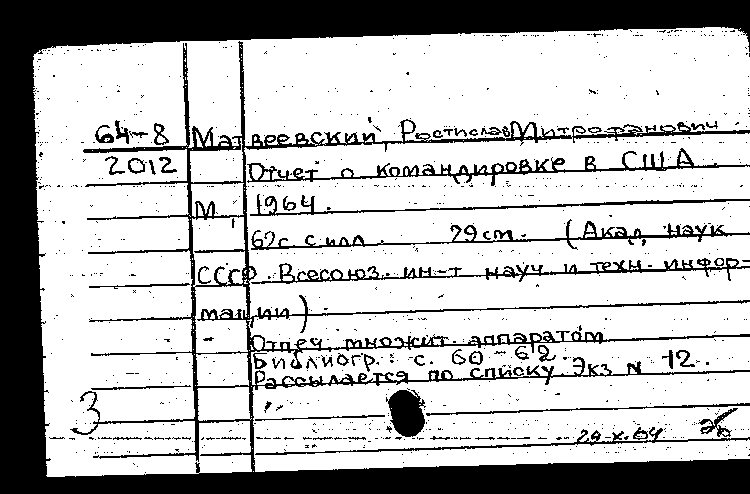 64-8 Матвеевский, Ростислав Митрофанович
2012 Отчет о командировке в США.
М, 1964.
62с. с илл. 29см. (Акад, наук
СССР. Всесоюз. ин-т науч и техн. инфор-
мации)
Отпеч. множит. аппаратом
Библиогр.: с. 60-62.
Рассылается по списку. Экз N 12.
3
29-X-64